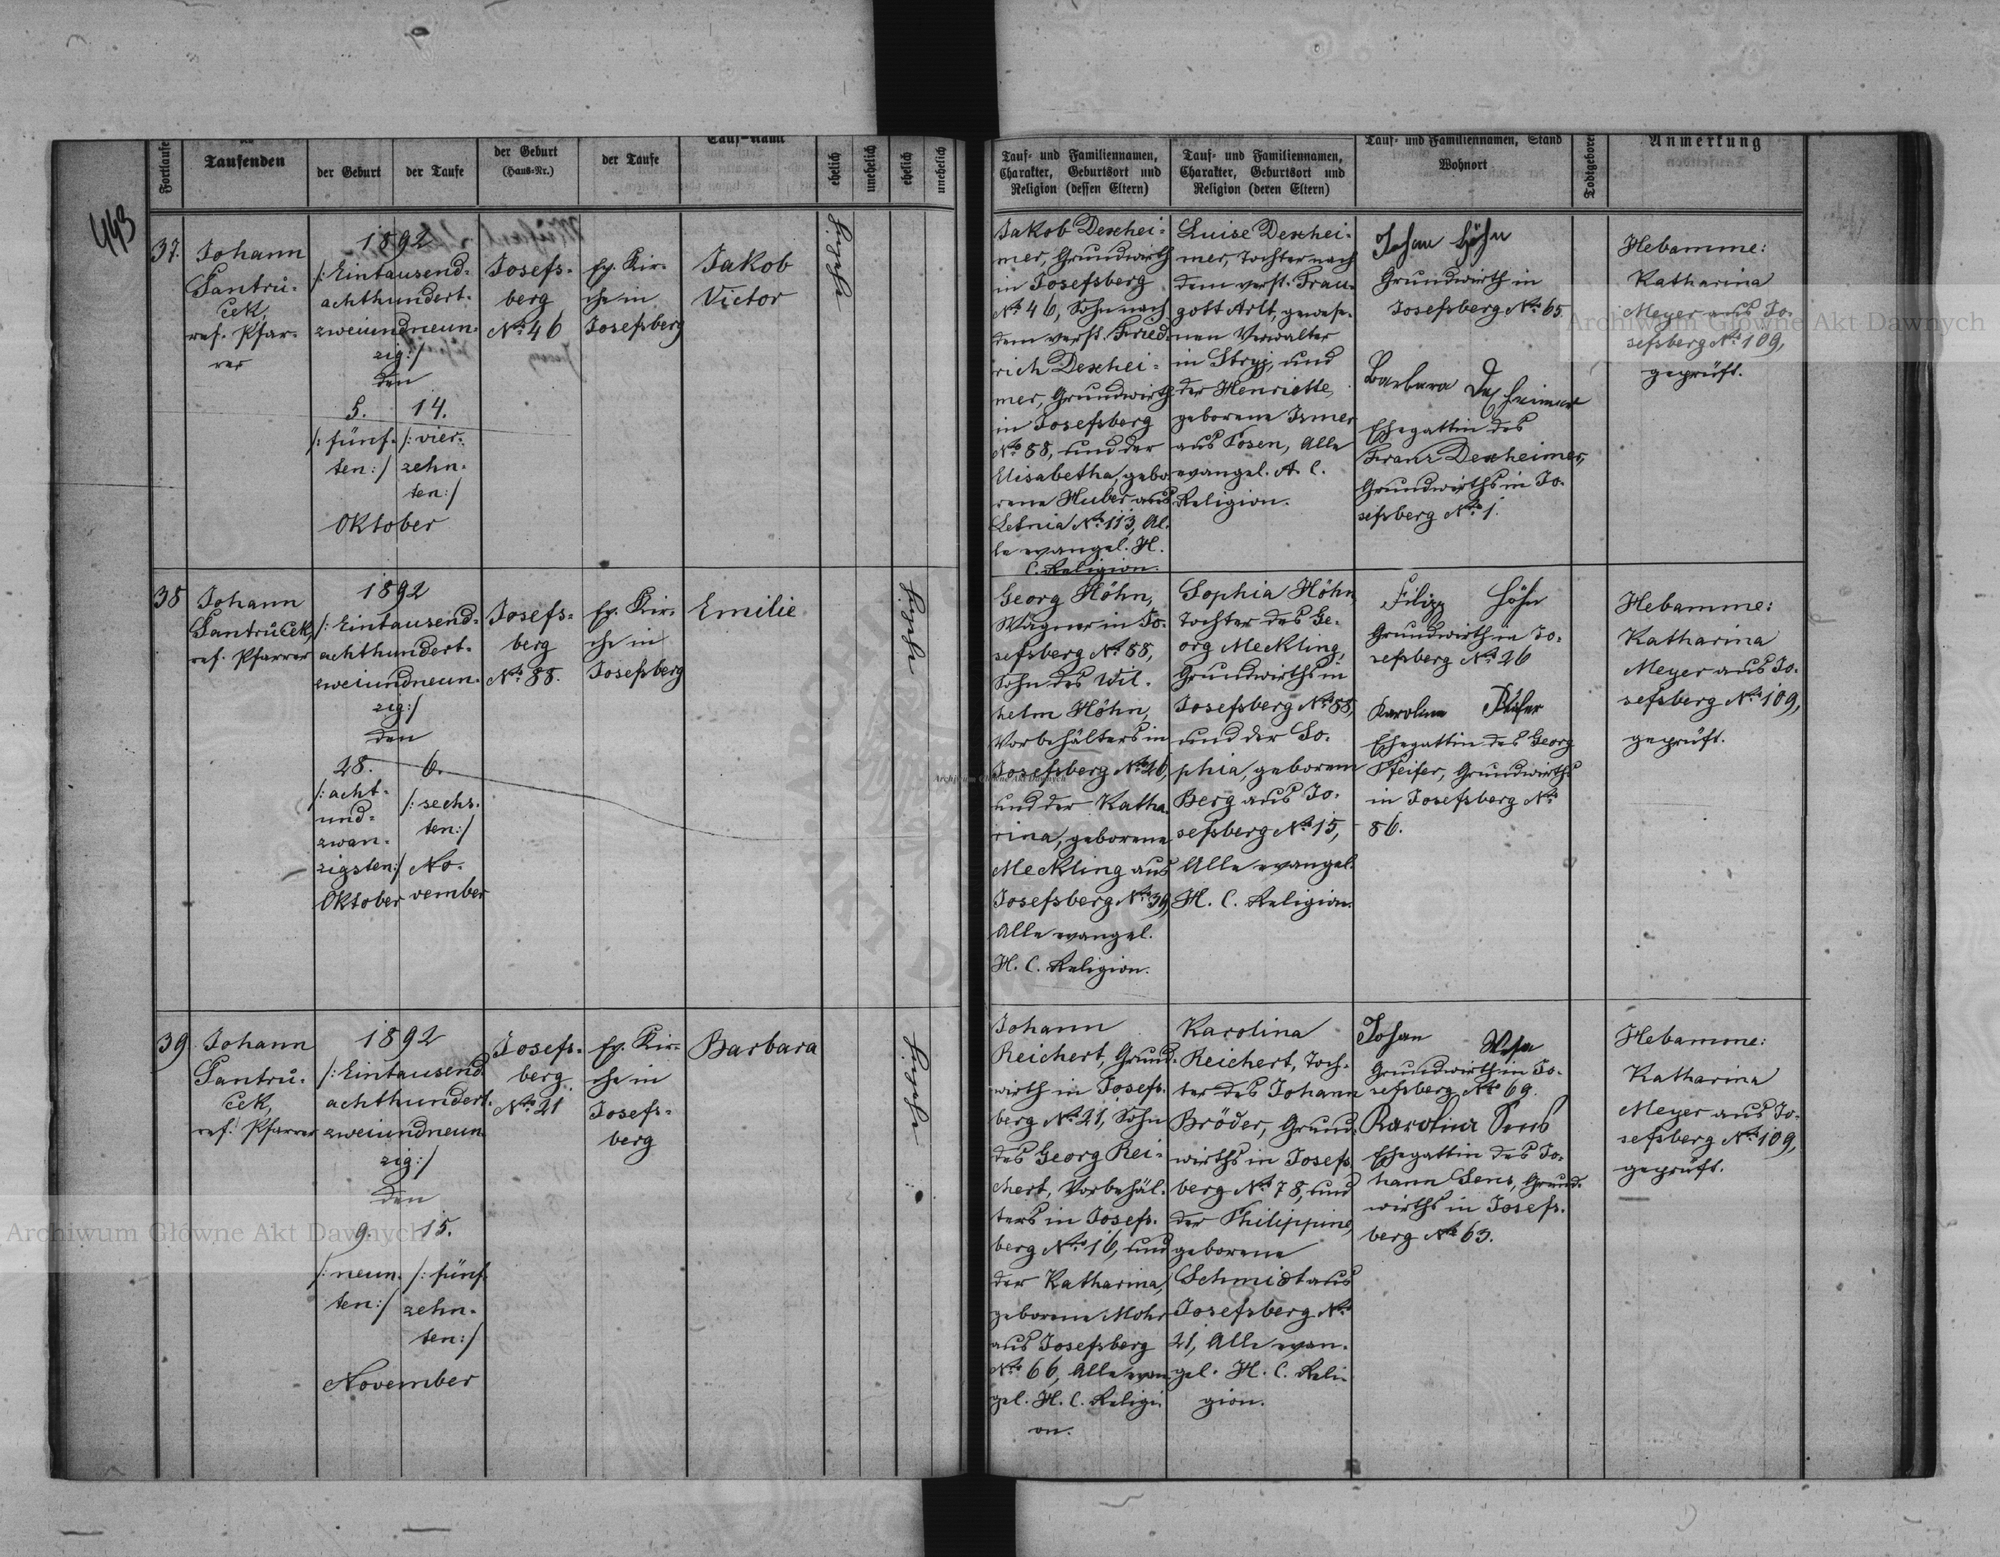 443
Fortlaufe
Taufenden
der Geburt
der Taufe
der Geburt
(Haus-Nr.)
der Taufe
Tauf-Name
ehelich
unehelich
ehelich
unehelich
Tauf- und Familiennamen,
Charakter, Geburtsort und
Religion (dessen Eltern)
Tauf- und Familiennamen,
Charakter, Geburtsort und
Religion (deren Eltern)
Tauf- und Familiennamen, Stand
Wohnort
Todtgeboren
Anmerkung
37.
Johann
Santrů-
ček,
ref. Pfar-
rer
1892
/:Eintausend-
achthundert-
zweiundneun-
zig:/
den
5.
/:fünf-
ten:/
14.
/:vier-
zehn-
ten:/
Oktober
Josefs-
berg
No. 46
Ev. Kir-
che in
Josefsberg
Jakob
Victor
Jakob Dexhei-
mer, Grundwirth
in Josefsberg
No. 46, Sohn nach
dem verst. Fried-
rich Dexhei-
mer, Grundwirth
in Josefsberg
No. 88, und der
Elisabetha, gebo-
rene Huber aus
Letnia No. 113, Al-
le evangel. H.
C. Religion.
Luise Dexhei-
mer, Tochter nach
dem verst. Frau-
gott Arlt, gewese-
nen Verwalter
in Stryj, und
der Henriette,
geborene Ismer
aus Posen, Alle
evangel. A. C.
Religion.
Johan Höhn
Grundwirth in
Josefsberg No. 65
Barbara Dexheimer
Ehegattin des
Franz Dexheimer,
Grundwirths in Jo-
sefsberg No. 1.
Hebamme:
Katharina
Meyer aus Jo-
sefsberg No. 109,
geprüft.
38
Johann
Santrůček,
ref. Pfarrer
1892
/:Eintausend-
achthundert-
zweiundneun-
zig:/
den
28.
/:acht-
und-
zwan-
zigsten:/
Oktober
6.
/:sechs-
ten:/
No-
vember
Josefs-
berg
No. 88.
Ev. Kir-
che in
Josefsberg
Emilie
Georg Höhn,
Wagner in Jo-
sefsberg No. 88,
Sohn des Wil-
helm Höhn,
Vorbehälters in
Josefsberg No. 26,
und der Katha-
rina, geborene
Meckling aus
Josefsberg No. 39,
Alle evangel.
H. C. Religion.
Sophia Höhn,
Tochter des Ge-
org Meckling,
Grundwirths in
Josefsberg No. 88,
und der So-
phia, geborene
Berg aus Jo-
sefsberg No. 15,
Alle evangel.
H. C. Religion.
Filipp Höhn
Grundwirth in Jo-
sefsberg No. 26
Karolina
Ehegattin des Georg
Pfeifer, Grundwirths
in Josefsberg No.
86.
Hebamme:
Katharina
Meyer aus Jo-
sefsberg No. 109,
geprüft.
39
Johann
Santrů-
ček,
ref. Pfarrer
1892
/:Eintausend
achthundert-
zweiundneun-
zig:/
den
9.
/:neun-
ten:/
15.
/:fünf-
zehn-
ten:/
November
Josefs-
berg
No. 21
Ev. Kir-
che in
Josefs-
berg
Barbara
Johann
Reichert, Grund-
wirth in Josefs-
berg No. 21, Sohn
des Georg Rei-
chert, Vorbehäl-
ters in Josefs-
berg No. 16, und
der Katharina,
geborene Mohr
aus Josefsberg
No. 66, Alle evan-
gel. H. C. Religi-
on.
Karolina
Reichert, Toch-
ter des Johann
Bröder, Grund-
wirths in Josefs-
berg No. 78, und
der Philippine,
geborene
Schmidt aus
Josefsberg No.
21, Alle evan-
gel. H. C. Reli-
gion.
Johan
Grundwirth in Jo-
sefsberg No. 69.
Karolina Sens
Ehegattin des Jo-
hann Sens, Grund-
wirths in Josefs-
berg No. 63.
Hebamme:
Katharina
Meyer aus Jo-
sefsberg No. 109,
geprüft.
Archiwum Główne Akt Dawnych
Archiwum Główne Akt Dawnych
Archiwum Główne Akt Dawnych